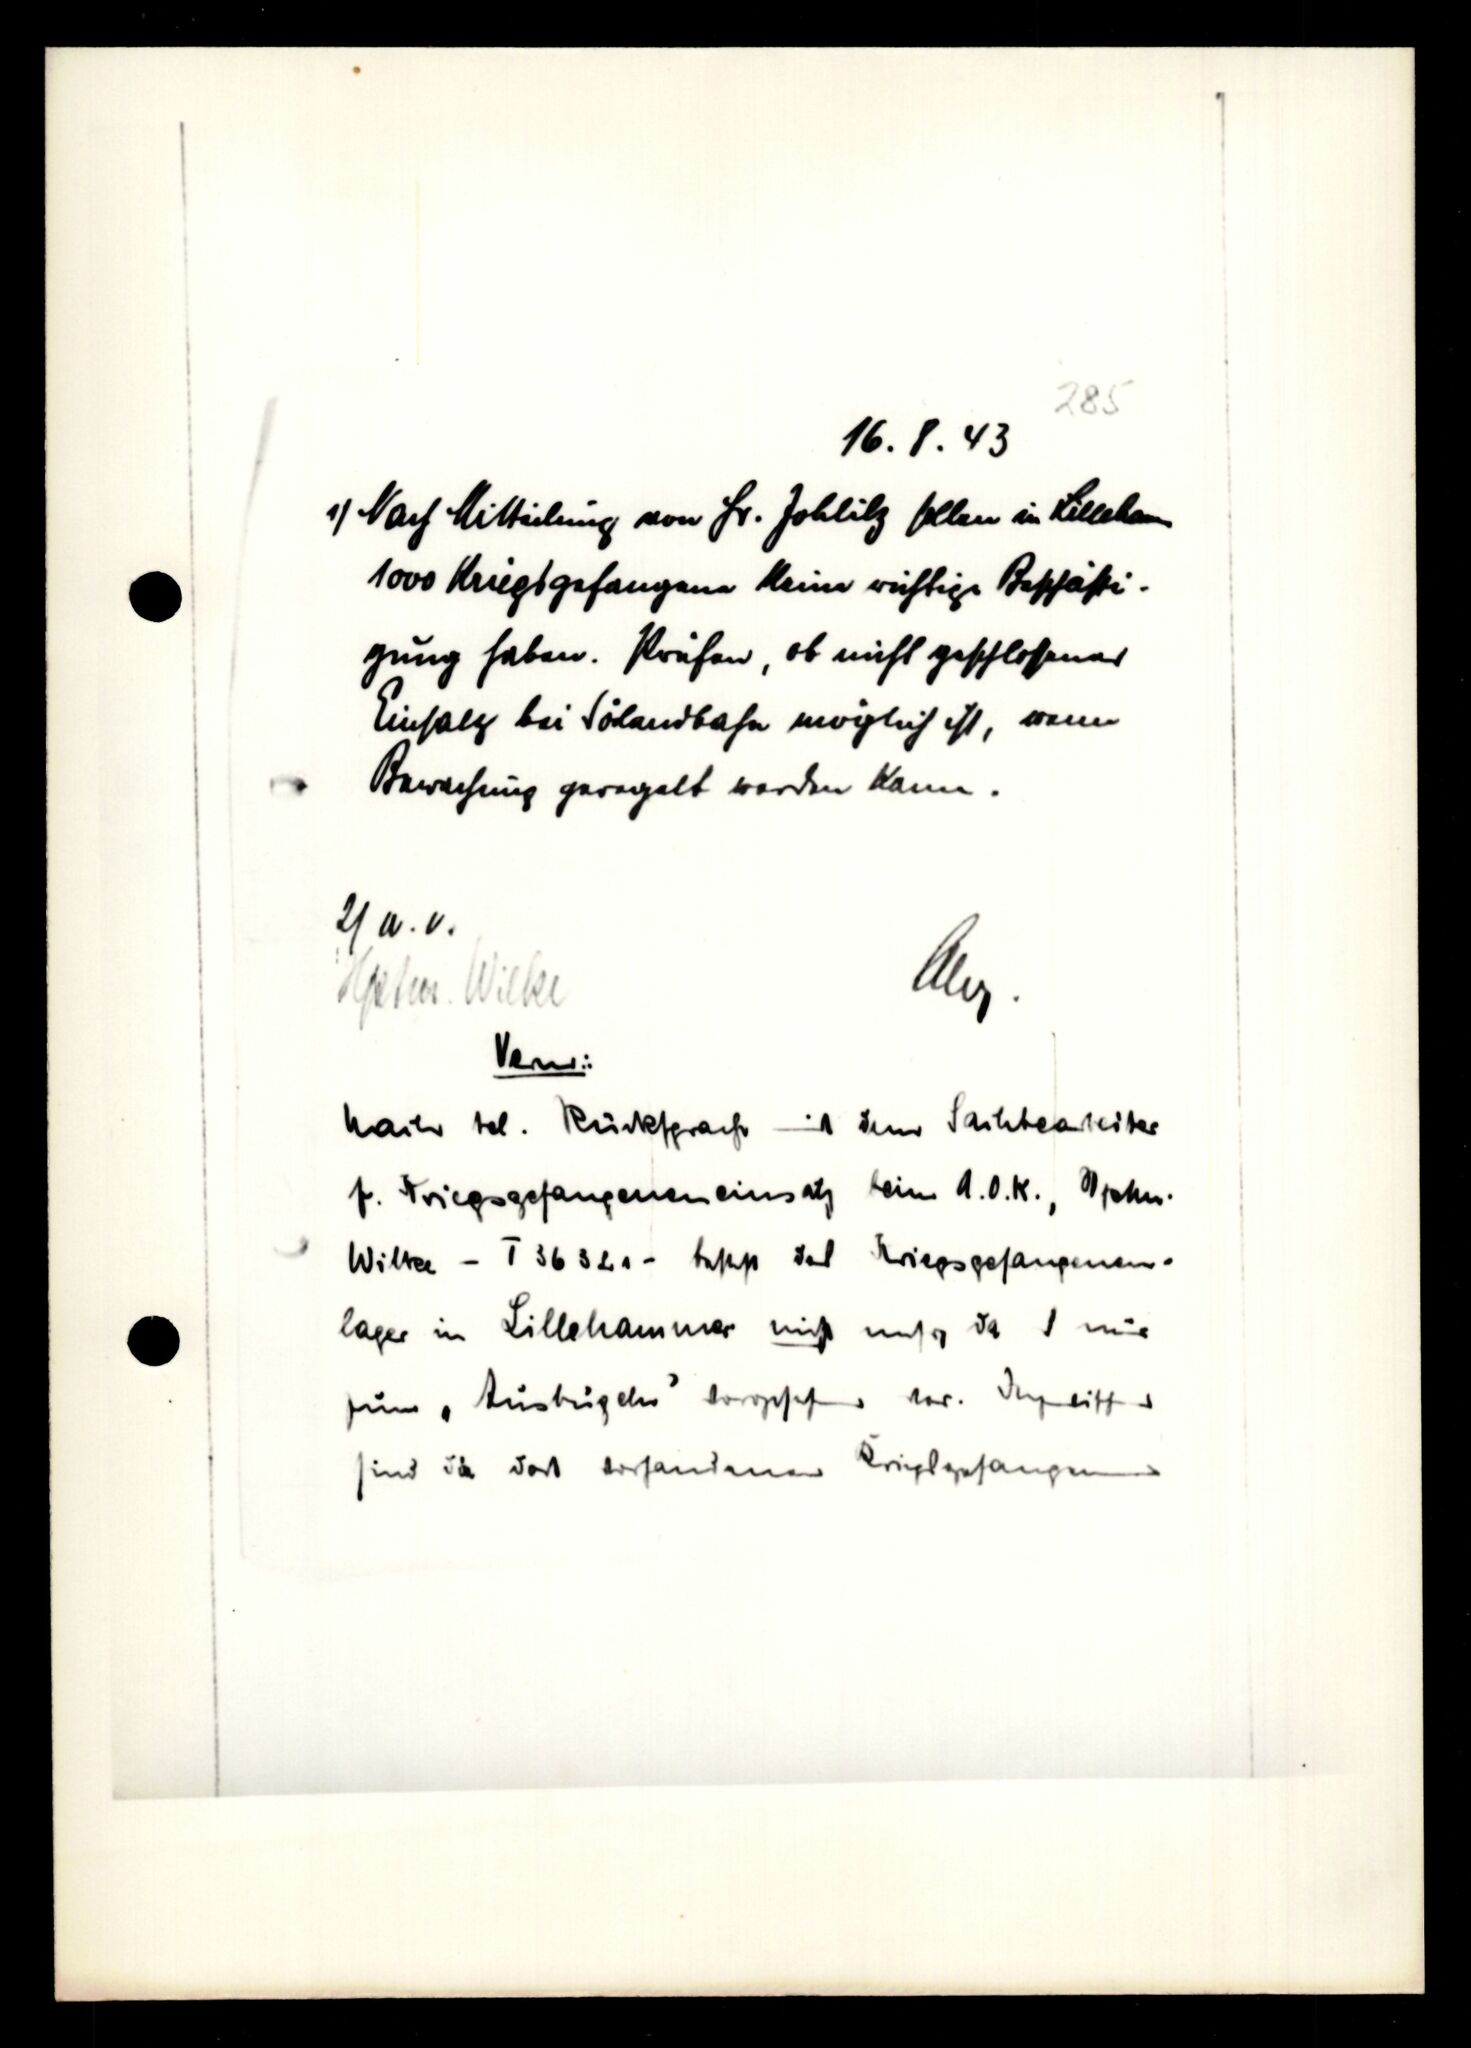 285
16. 8. 43
1) Nach Mitteilung von Hr. Johlitz sollen in Lilleham
1000 Kriegsgefangene keine wichtige Beschäfti-
gung haben. Prüfen, ob nicht geschlossener
Einsatz bei Sörlandbahn möglich ist, wenn
Bewachung geregelt werden kann.
2) W. V.
Hptm. Wilke
Verm.:
Nach tel. Rücksprache mit dem Sachbearbeiter
f. Kriegsgefangeneneinsatz beim A.O.K., Hptm.
Wilke - T 36321 - besteht das Kriegsgefangenen-
lager in Lillehammer nicht mehr, da es nur
zum „Ausbügeln" vorgesehen war. Inzwischen
sind die dort vorhandenen Kriegsgefangenen